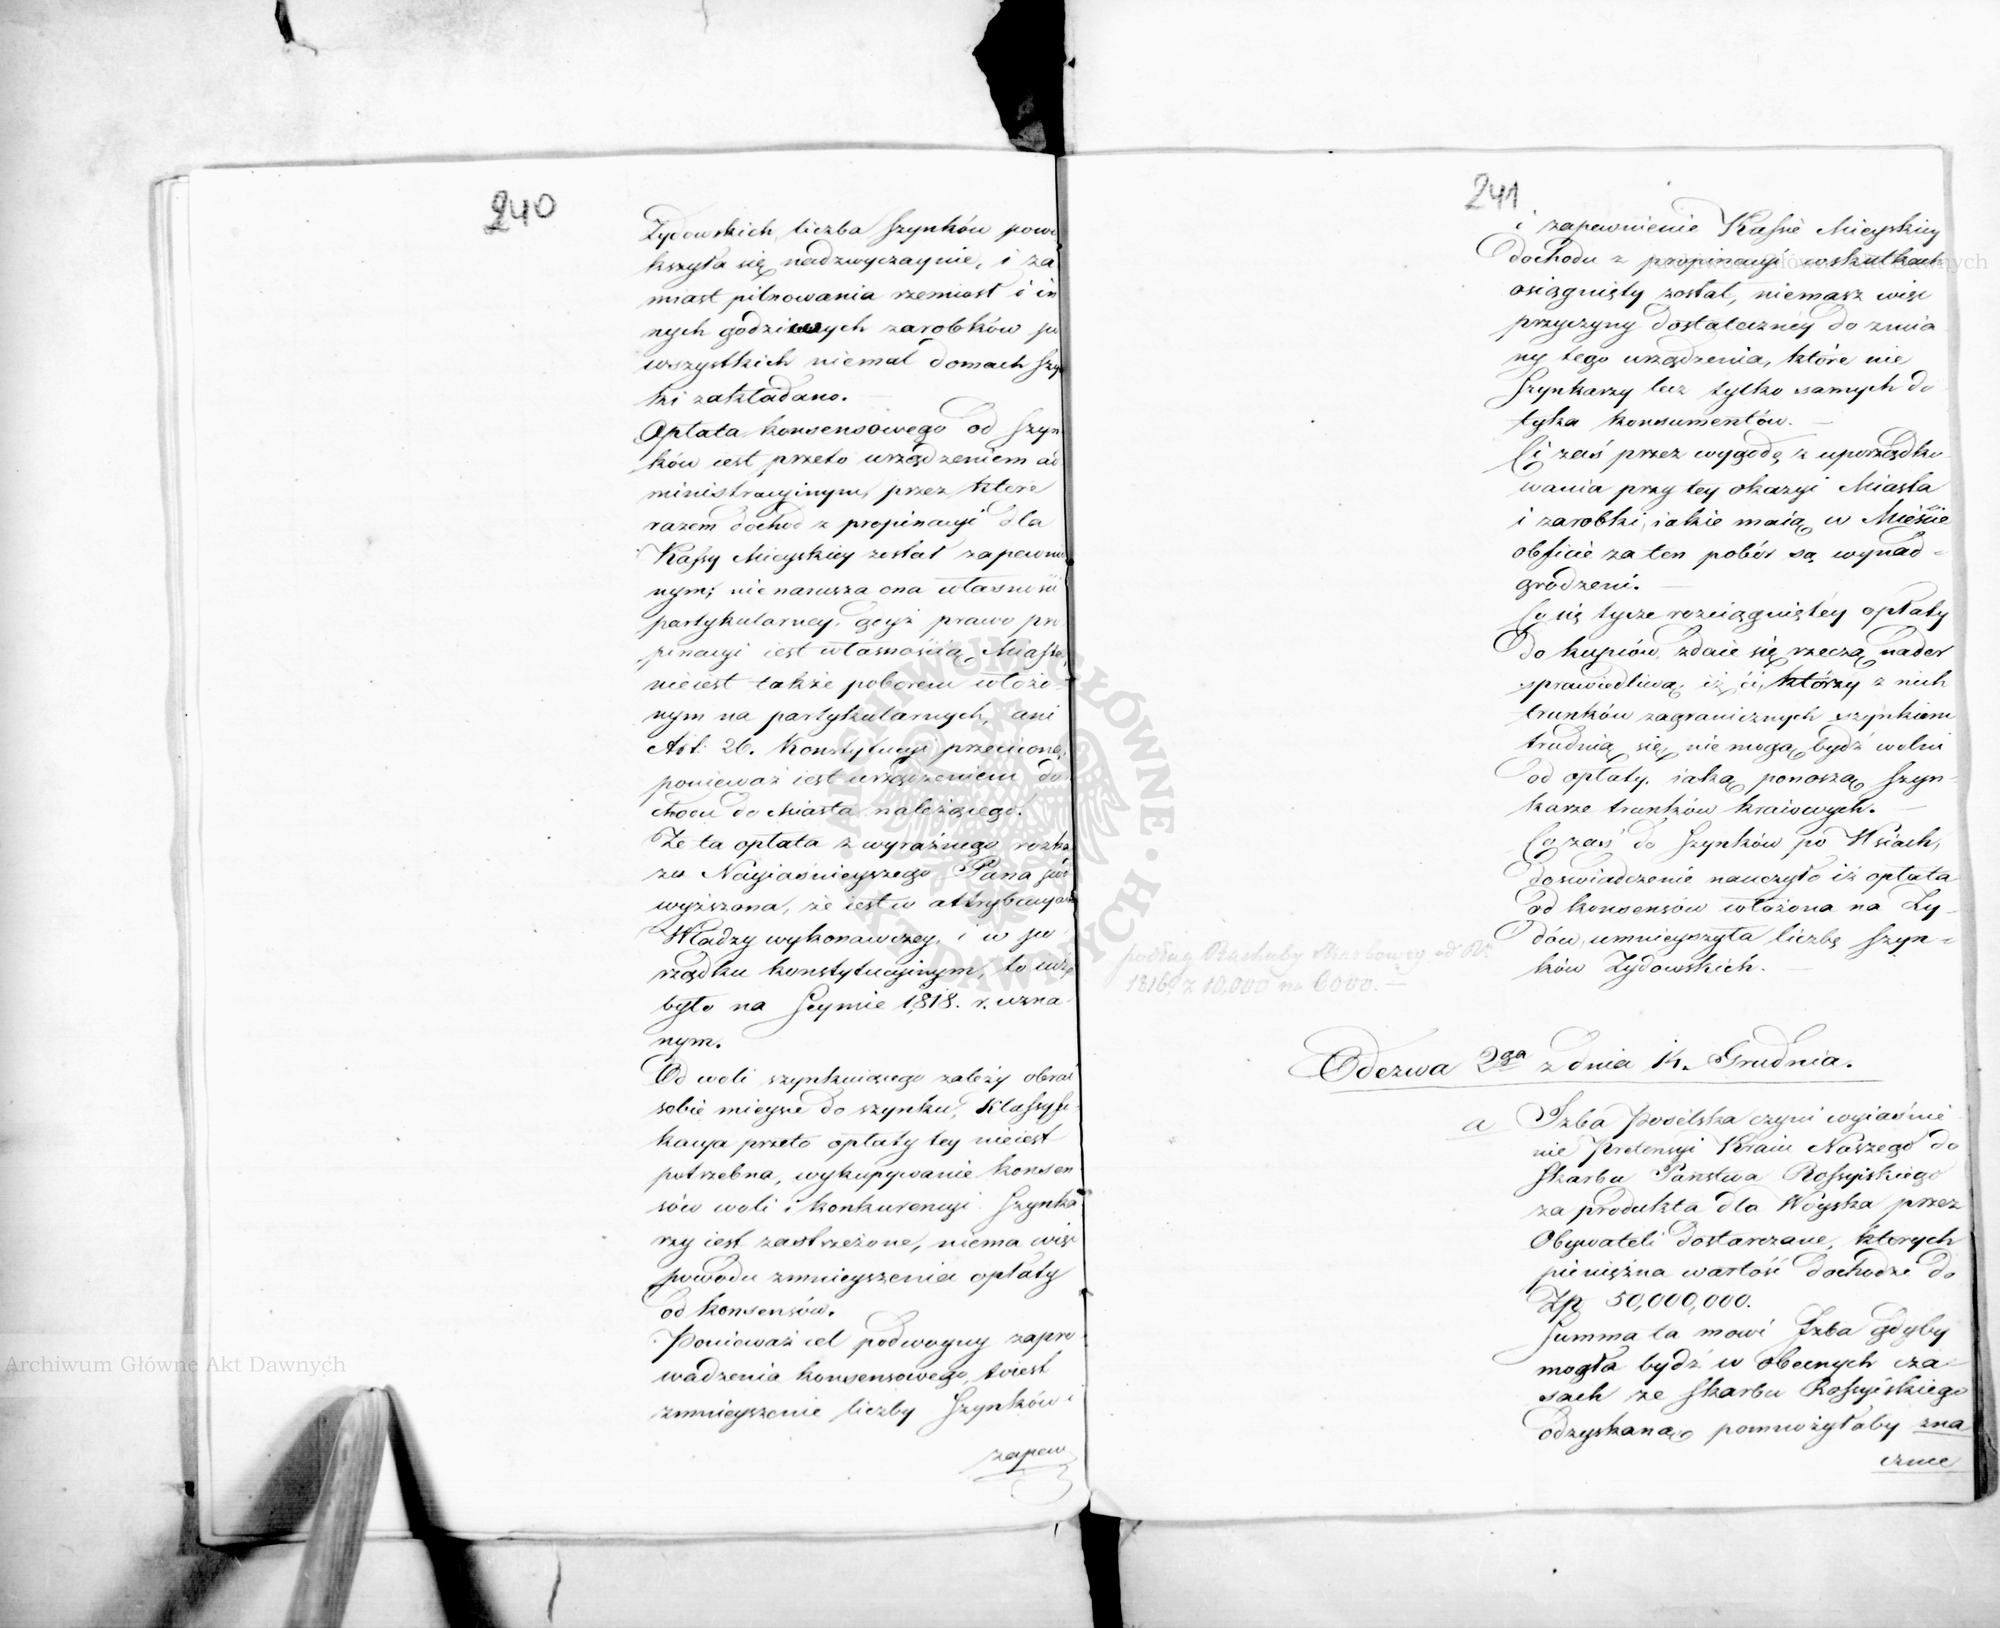 240
Zydowskich, liczba Szynków powi
kszyła się nadzwyczaynie, i za
miast pilnowania rzemiost i in
nych godziwych zarobków po
wszystkich niemal domach Szyn
ki zakładano.
Opłata konsensowego od Szyn
ków iest przeto urządzeniem ad
ministracyinym, przez które
razem dochod z propinacyi dla
Kassy Mieyskiey został zapewnio
nym; nie narusza ona własności
partykularney, gdyż prawo pro
pinacyi iest własnością Miasta,
nieiest także poborem włożo-
nym na partykularnych, ani
Art: 26. Konstytucyi przeciwne,
ponieważ iest urządzeniem do
chodu do Miasta należącego.
Że ta opłata z wyraźnego rozka
zu Nayiaśnieyszego Pana pod
wyższona, że iest w attrybucyach
Władzy wykonawczey, i w po
rządku konstytucyinym, to iuż
było na Seymie 1818. r. uzna
nym.
Od woli szynkuiącego zależy obrać
sobie mieysce do szynku, Klassyfi-
kacya przeto opłaty tey nieiest
potrzebna, wykupywanie konsen
sów woli i konkurencyi Szynka
rzy iest zastrzeżone, niema więc
powodu zmnieyszenia opłaty
od konsensów.
Ponieważ cel podwoyny zapro
wadzenia konsensowego, to iest
zmnieyszenie liczby Szynków i
zapew
241
i zapewnienie Kassie Mieyskiey
dochodu z propinacyi w skutkach
osiągnięty został, niemasz więc
przyczyny dostateczney do zmia
ny tego urządzenia, które nie
Szynkarzy lecz tylko samych do
tyka konsumentów.
Ci zaś przez wygodę z uporządko
wania przy tey okazyi Miasta
i zarobki, iakie maią w Mieście
obficie za ten pobór są wynad-
grodzeni.
Co się tycze rozciągniętey opłaty
do kupców, zdaie się rzeczą nader
sprawiedliwą, iż ci, którzy z nich
trunków zagranicznych szynkiem
trudnią się, nie mogą bydź wolni
od opłaty, iaką ponoszą Szyn-
karze trunków kraiowych.
Co zaś do Szynków po Wsiach,
doswiadczenie nauczyło iż opłata
od konsensów włożona na Ży-
dów, umnieyszyła liczbę Szyn-
ków Zydowskich.
podług Rachuby Skarbowey od Ru
1816. z 10,000 na 6000.
Odezwa 2ga z dnia 14. Grudnia.
a Izba Poselska czyni wyiaśnie
nie Pretensyi Kraiu Naszego do
Skarbu Państwa Rossyiskiego
za produkta dla Woyska przez
Obywateli dostarczane, których
pieniężna wartość dochodzi do
Zp 50,000,000.
Summa ta mowi Izba gdyby
mogła bydź w obecnych cza-
sach ze Skarbu Rossyiskiego
odzyskaną, pomnożyłaby zna
cznie
Archiwum Główne Akt Dawnych
Archiwum Główne Akt Dawnych
ARCHIWUM GŁÓWNE · AKT DAWNYCH ·